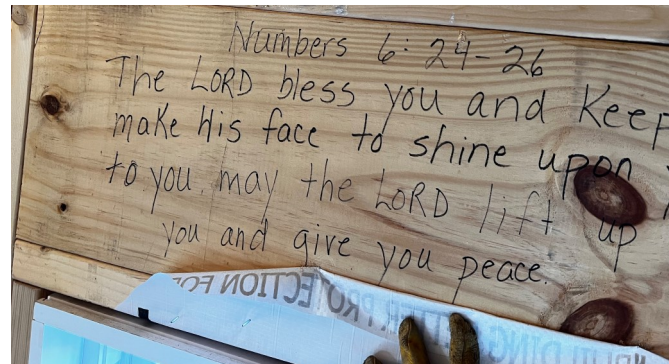 Numbers 6:24-26
The LORD bless you and keep
make his face to shine upon
to you. may the LORD lift up
you and give you peace.
PROTECTION FO